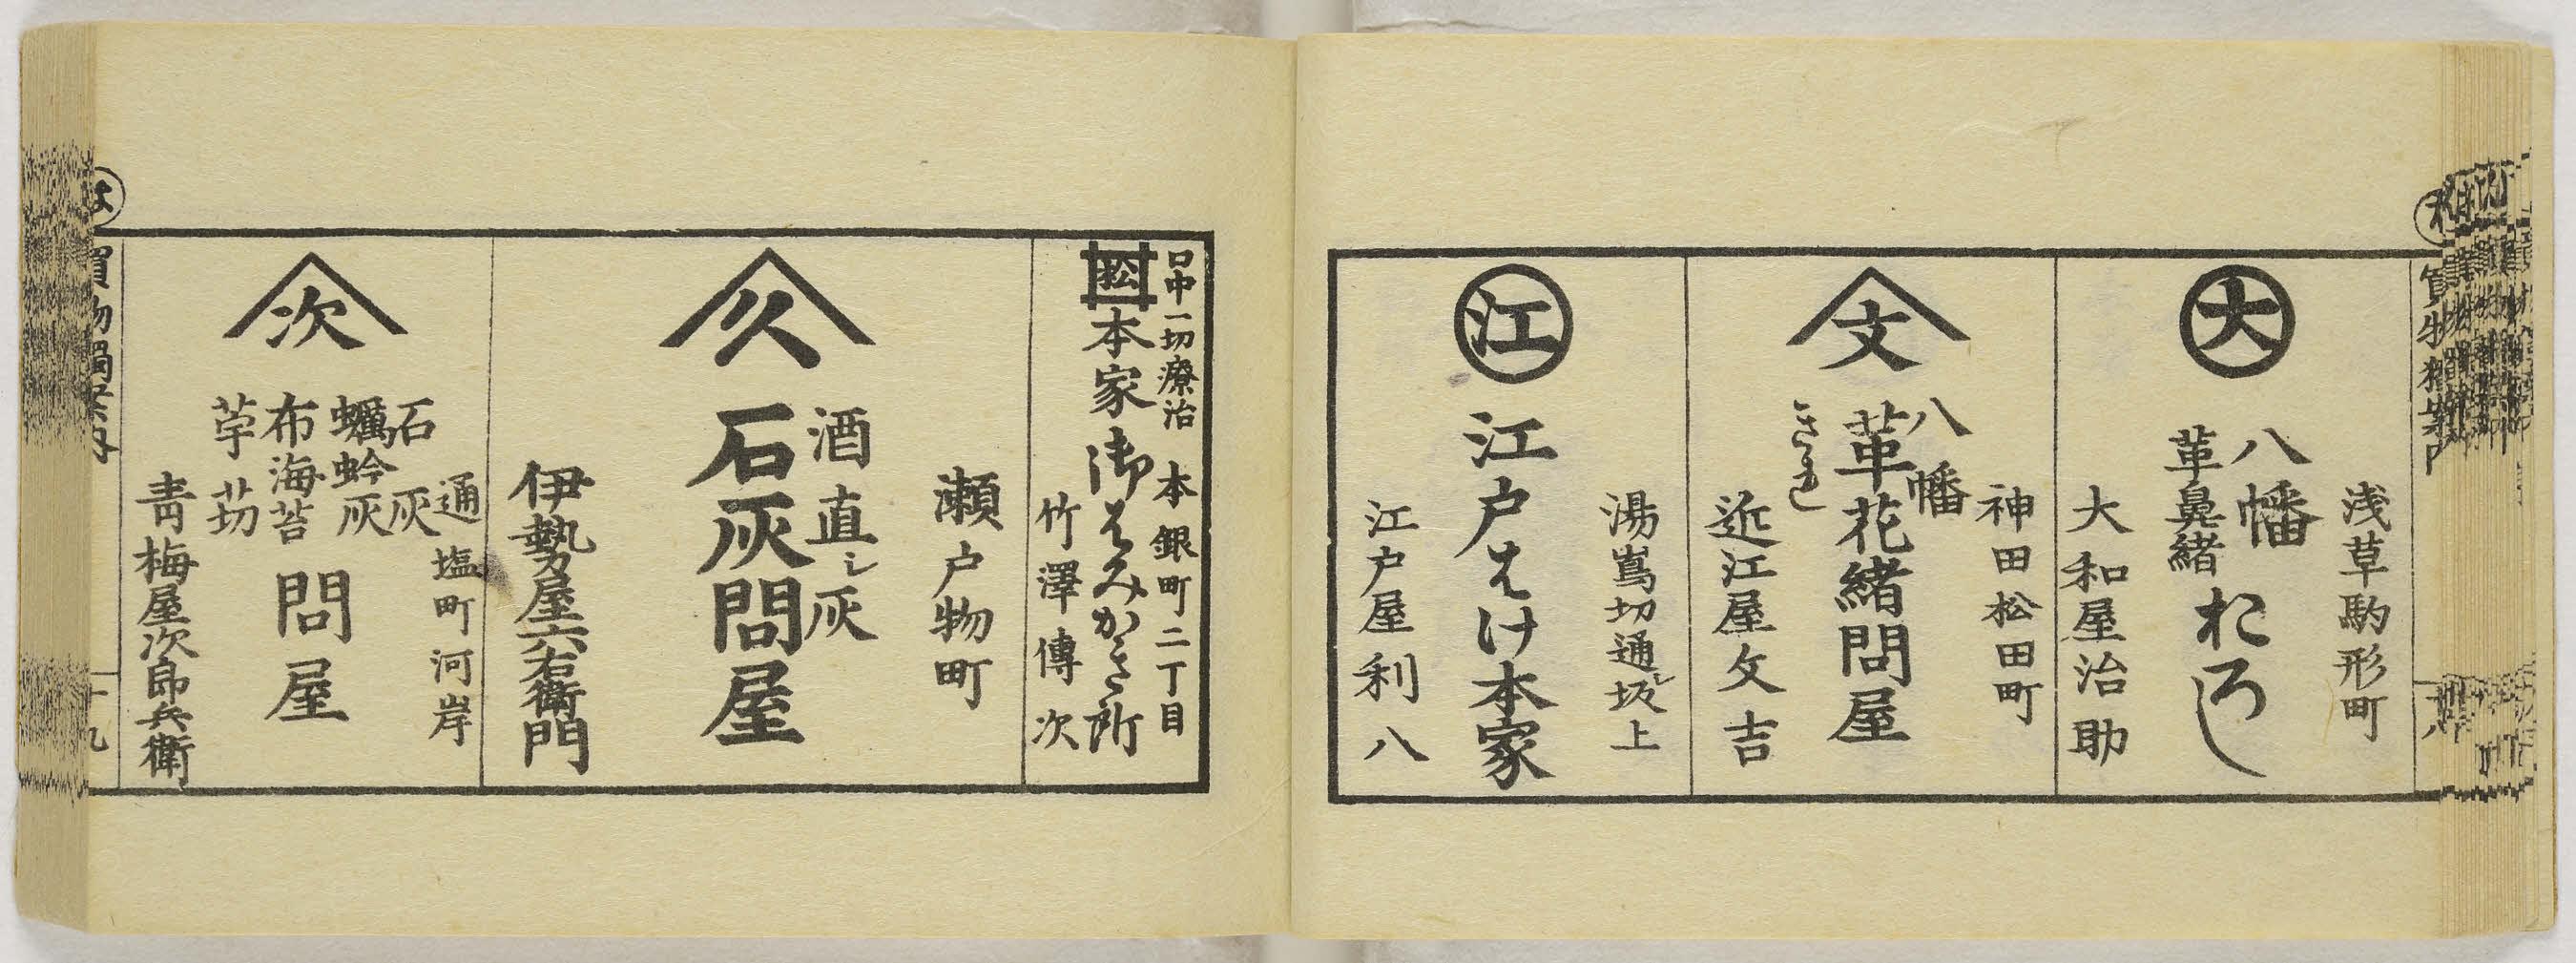 大
浅草駒形町
八幡
革鼻緒
おろし
大和屋治助
文
神田松田町
八幡
革花緒問屋
きうれし
近江屋文吉
江
湯嶌切通シ坂上
江戸はけ本家
江戸屋利八
口中一切療治
本銀町二丁目
松
本家御はみがき所
竹澤傳次
久
瀬戸物町
酒直シ灰
石灰問屋
伊勢屋六右衛門
次
通塩町河岸
石灰
蠣蚧灰
布海苔
苧苆
問屋
青梅屋次郎兵衛
は
十九